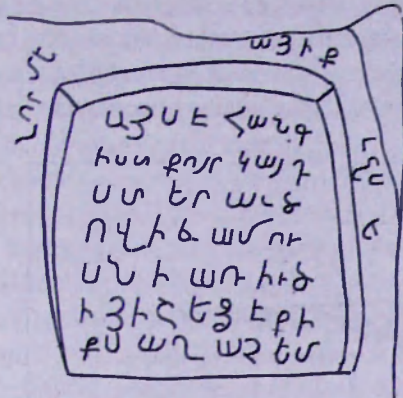 ԱՅԻՔ
ԱՅՍ Է ՀԱՆԳ
ԻՍՏ ՔՈՅՐ ԿԱՅԴ
ՍՏ ԵՐ ԱՒՁ
ՈՎ Ի Ճ ԱՄ ՈՒ
ՍՆ Ի ԱՌ ԻՒԾ
Ի ՅԻՇ ԵՑ Է ՔԻ
ՔՍ ԱՂ ԱՉ ԵՄ